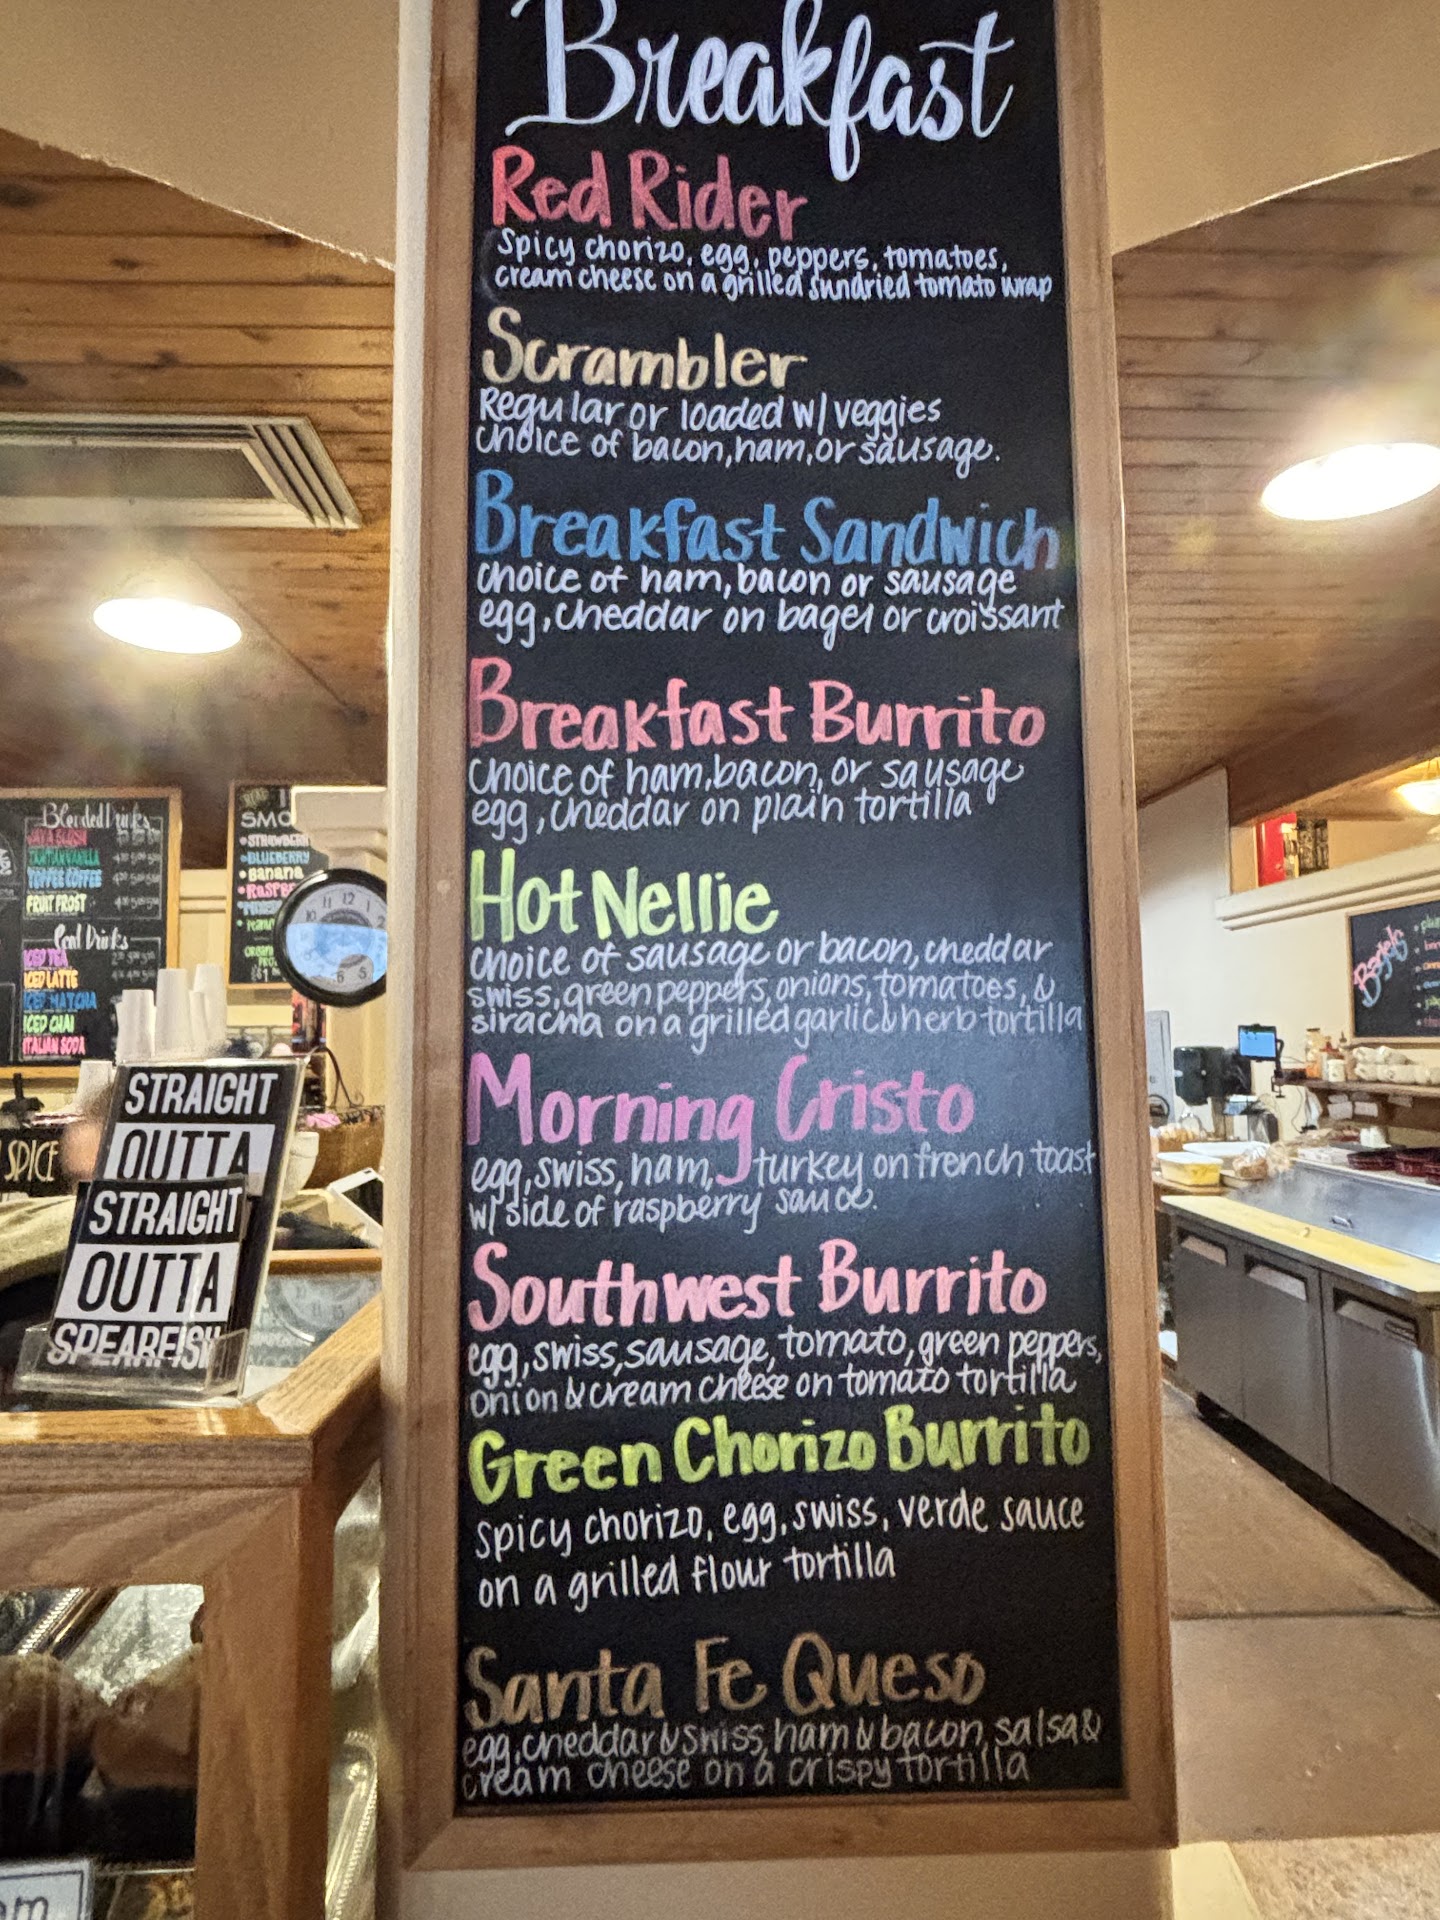 Breakfast
Red Rider
Spicy chorizo, egg, peppers, tomatoes,
cream cheese on a grilled sundried tomato wrap
Scrambler
Regular or loaded w/ veggies
choice of bacon, ham, or sausage.
Breakfast Sandwich
choice of ham, bacon or sausage
egg, cheddar on bagel or croissant
Breakfast Burrito
choice of ham, bacon, or sausage
egg, cheddar on plain tortilla
Hot Nellie
choice of sausage or bacon, cheddar
swiss, green peppers, onions, tomatoes, &
siracha on a grilled garlic & herb tortilla
Morning Cristo
egg, swiss, ham, turkey on french toast
w/ side of raspberry sauce.
Southwest Burrito
egg, swiss, sausage, tomato, green peppers,
onion & cream cheese on tomato tortilla
Green Chorizo Burrito
spicy chorizo, egg, swiss, verde sauce
on a grilled flour tortilla
Santa Fe Queso
egg, cheddar & swiss, ham & bacon, salsa &
cream cheese on a crispy tortilla
Blended Drinks
JAVA BLUSH
TAHITIAN VANILLA
TOFFEE COFFEE
FRUIT FROST
Cool Drinks
ICED TEA
ICED LATTE
ICED MATCHA
ICED CHAI
ITALIAN SODA
SMO
•STRAWBERR
•BLUEBERRY
•Banana
•RASPBE
11 12 1
10
6 5
SPICE
STRAIGHT
OUTTA
STRAIGHT
OUTTA
SPEARFISH
Bagels